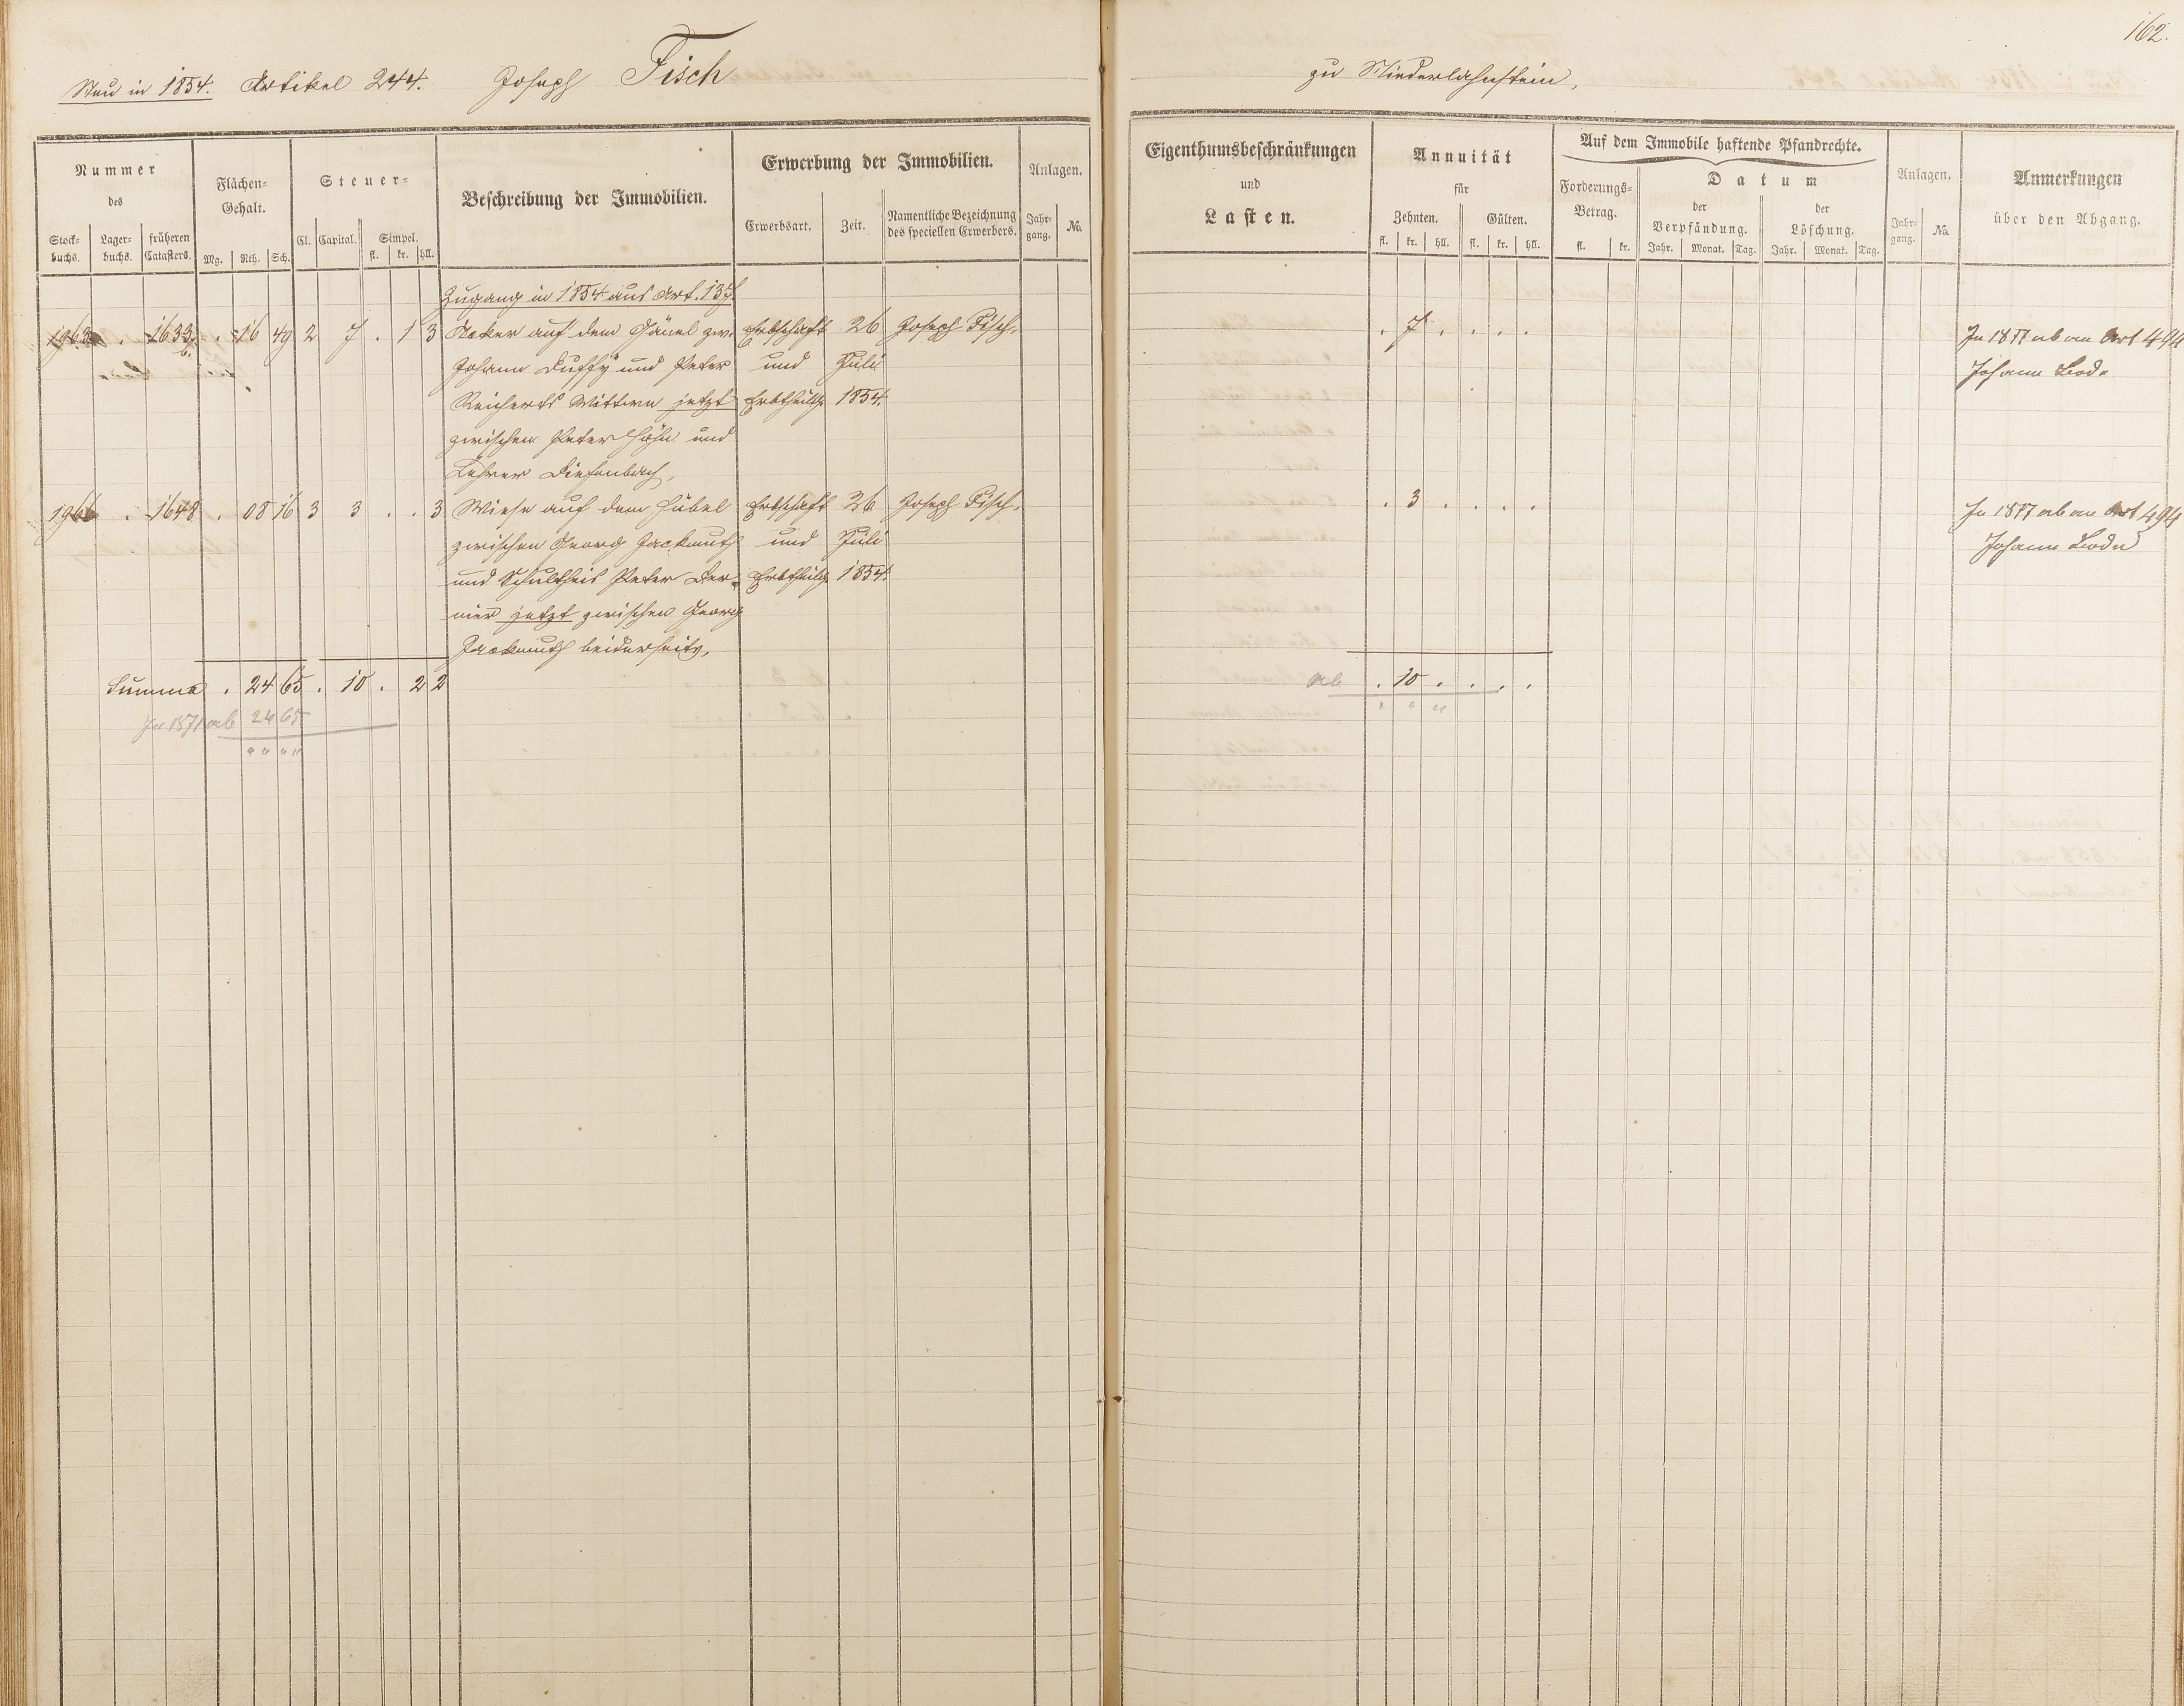 162.
Neu in 1854. Artikel 244. Joseph Fisch
zu Niederlahnstein,
Nummer
des
Stock-
buchs.
Lager-
buchs.
früheren
Catasters.
Flächen-
Gehalt.
Mg. Rth. Sch.
Steuer-
Cl. Capital. Simpel.
fl. kr. hll.
Beschreibung der Immobilien.
Erwerbung der Immobilien.
Erwerbsart. Zeit.
Namentliche Bezeichnung
des speciellen Erwerbers.
Anlagen.
Jahr-
gang.
No.
Eigenthumsbeschränkungen
und
Lasten.
Annuität
für
Zehnten. Gülten.
fl. kr. hll. fl. kr. hll.
Auf dem Immobile haftende Pfandrechte.
Forderungs-
Betrag.
fl. kr.
Datum
der
Verpfändung.
Jahr. Monat. Tag.
der
Löschung.
Jahr. Monat. Tag.
Anlagen.
Jahr-
gang.
No.
Anmerkungen
über den Abgang.
Zugang in 1854 aus Art. 137.
1963 . 1633 . 16 49 2 7 . 1 3 Acker auf dem zw. Erbschaft 26 Joseph Fisch. . 7 . . . . In 1877 ab an Art 494
b. Johann Duffy und Peter und Juli Johann
Reicherts Wittwe jetzt Erbtheilg. 1854.
zwischen Peter Höhn und
Lehrer Diefenbach,
1966 . 1648 . 08 16 3 3 . . 3 Wiese auf dem Hübel Erbschaft 26 Joseph Fisch. . 3 . . . . In 1877 ab an Art 494
zwischen Georg Zackmuth und Juli Johann
und Schultheis Peter Der- Erbtheilg. 1854.
nier jetzt zwischen Georg
Zackmuth beiderseits,
Summa . 24 65 . 10 . 2 2 . 10 . . . .
In 1871 ab 24 65 ab